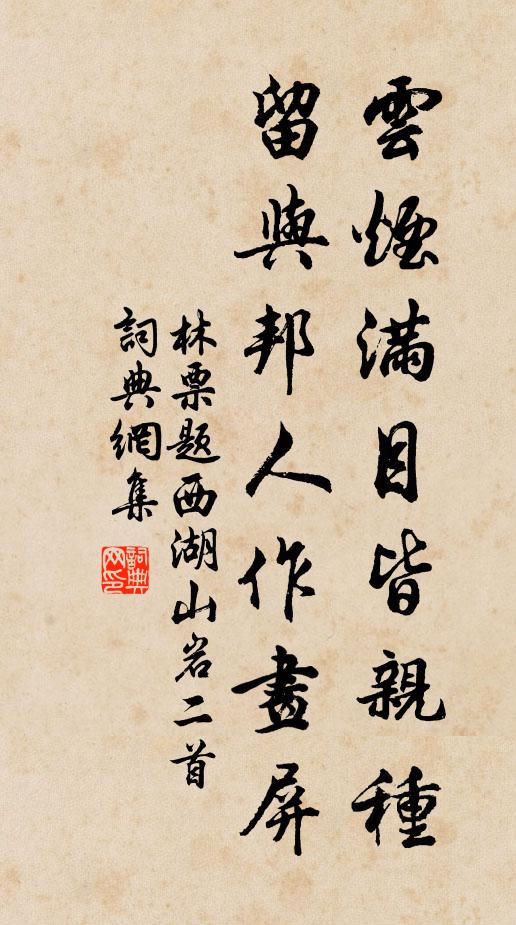 雲煙滿目皆親種
留與邦人作畫屏
林票题西湖山岩二首
詞典網集
詞典
网印